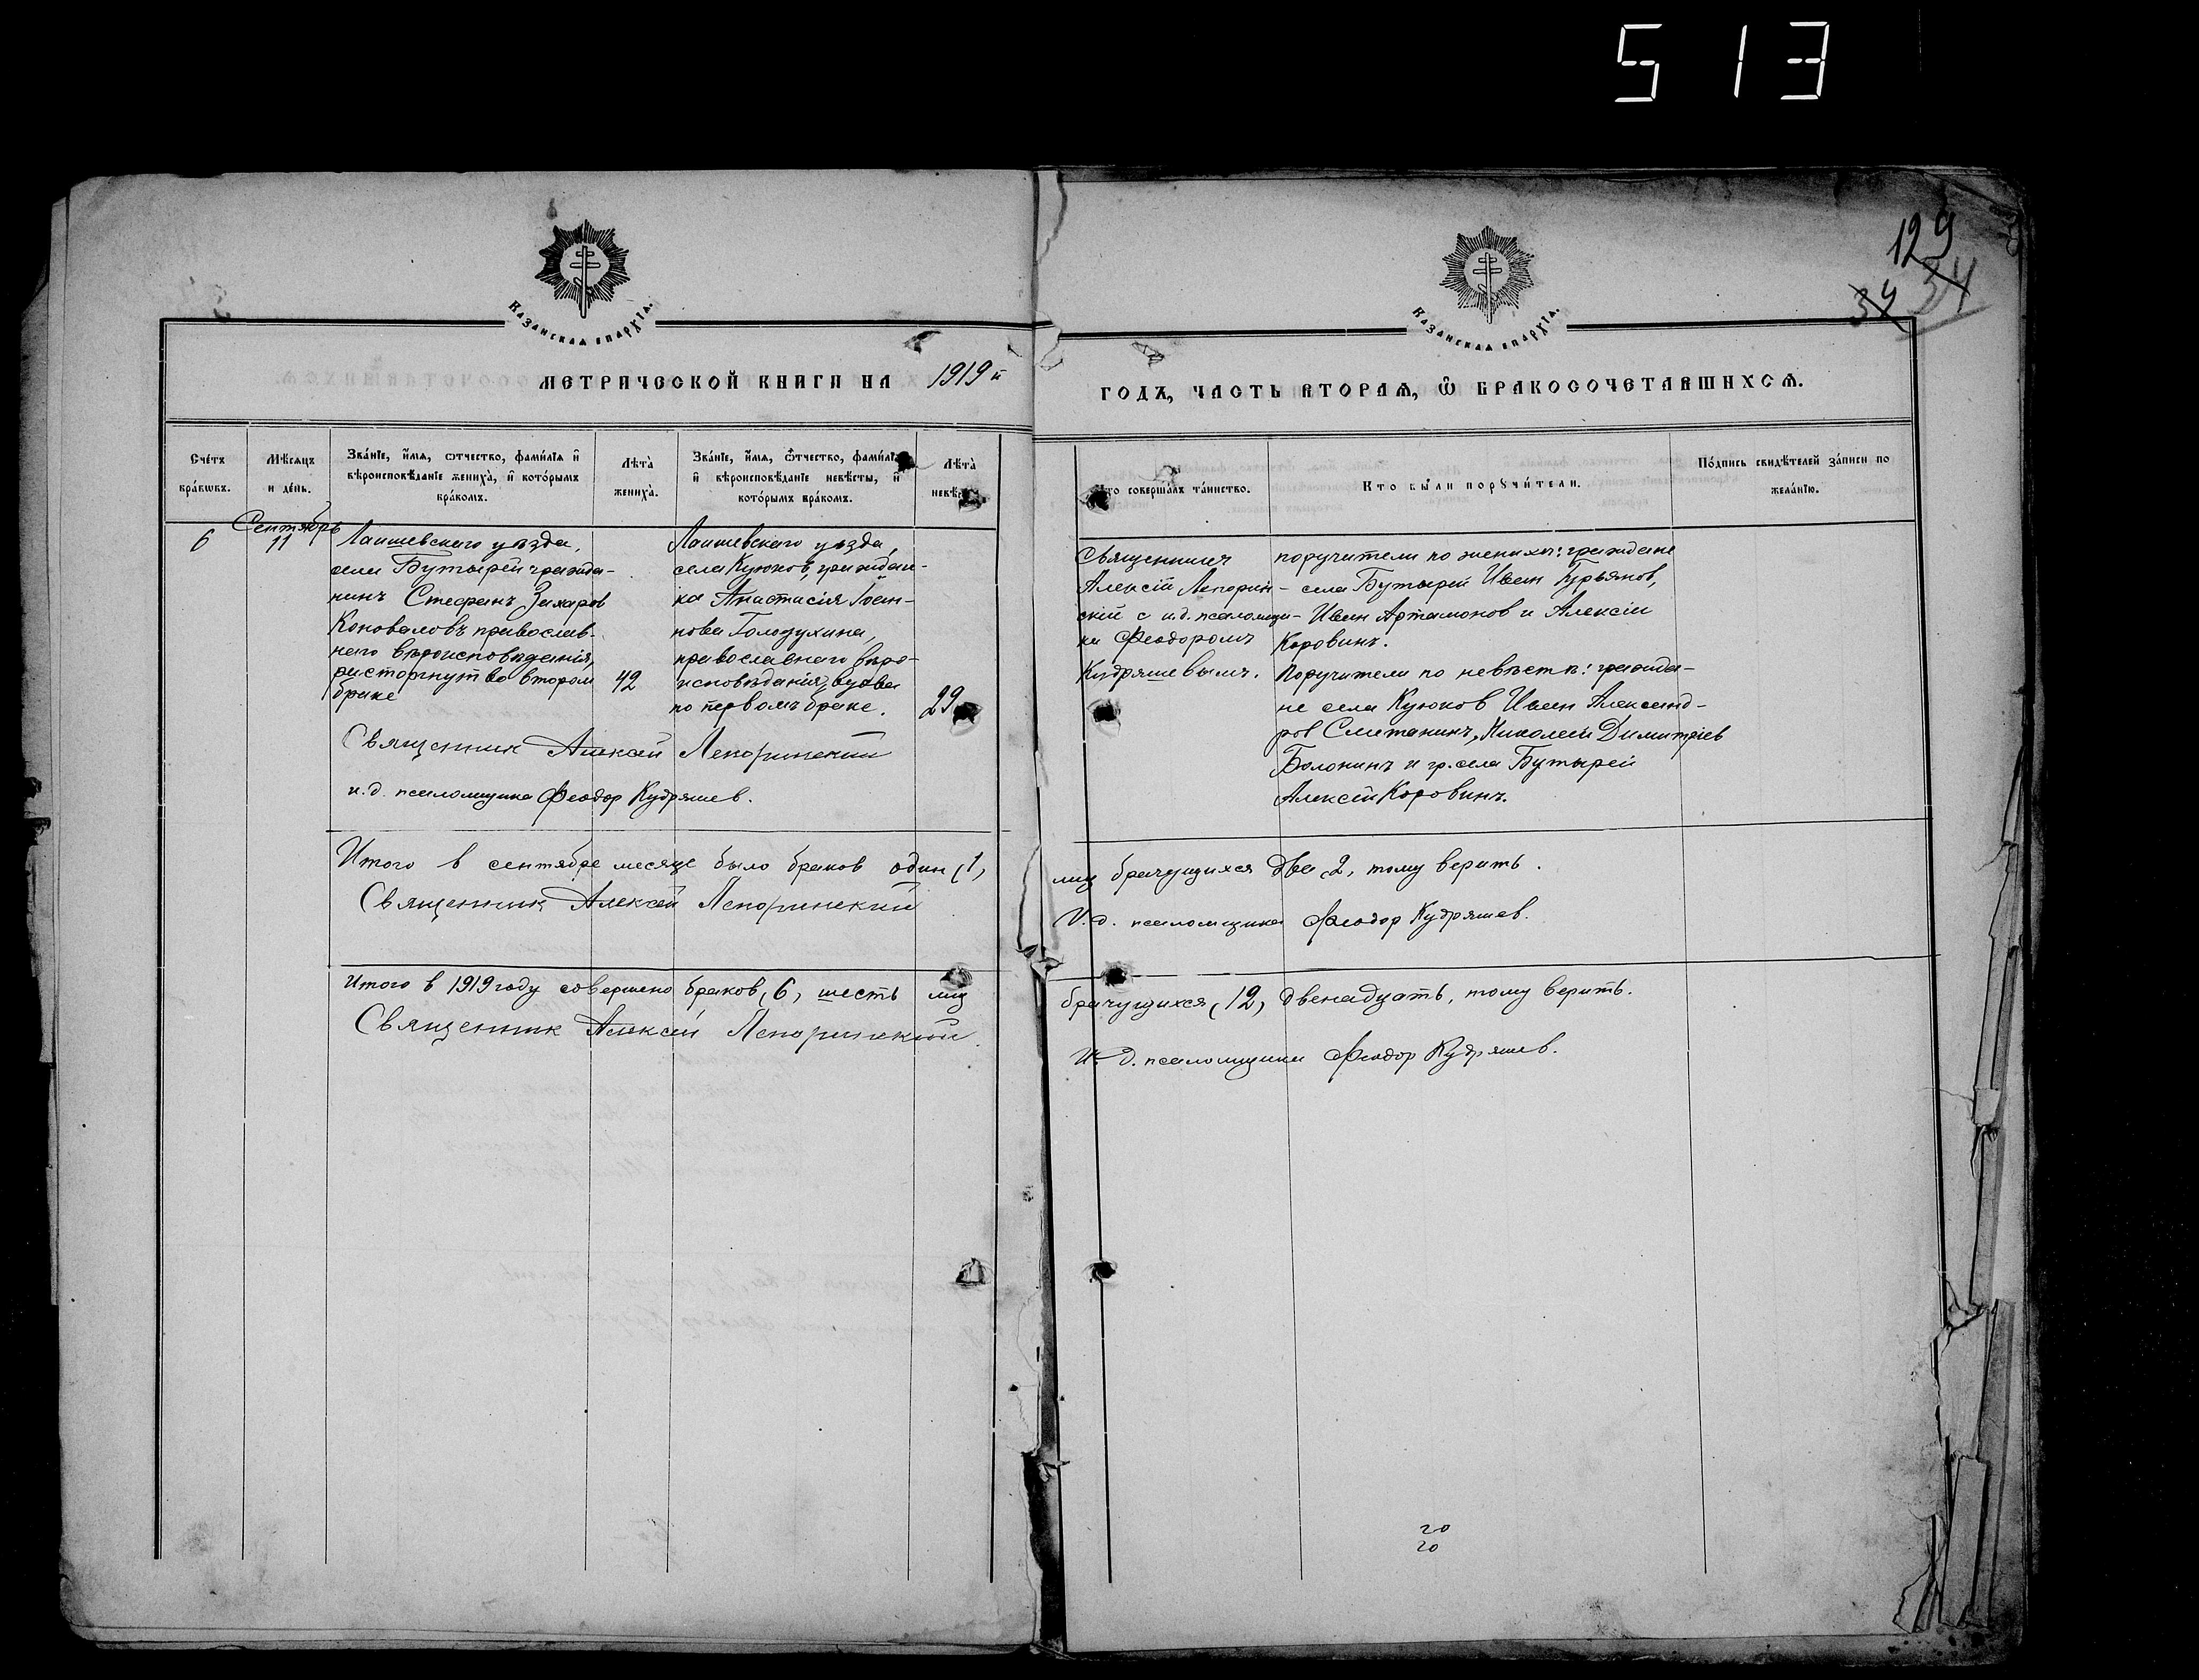 513
129
34
34
Казанская епархїа.
Казанская епархїа.
МЕТРИЧЕСКОЙ КНИГИ НА 1919 й
ГОДЪ, ЧАСТЬ ВТОРАѦ, Ѽ БРАКОСОЧЕТАВШИХСѦ.
Сче́тъ бра́кѡвъ.
Мѣ́сѧцъ и де́нь.
Зва́нїе, и҆́мѧ, ѻ҆́тчество, фами́лїѧ и҆ вѣроисповѣ́данїе жениха̀, и҆ кото́рымъ бра́комъ.
Лѣта̀ жениха̀.
Зва́нїе, и҆́мѧ, ѻ҆́тчество, фами́лїѧ и҆ вѣроисповѣ́данїе невѣ́сты, и҆ кото́рымъ бра́комъ.
Лѣта̀
Кто соверша́лъ та́инство.
Кто бы́ли порꙋчи́тели.
По́дпись свидѣ́телей за́писи по жела́нїю.
6
Сентябрь
11
Лаишевскаго уѣзда,
села Бутырей гражда-
нинъ Стефанъ Захаров
Коноваловъ православ-
наго вѣроисповѣданія,
расторгнут во втором
браке
42
Лаишевскаго уѣзда,
села Куюков, граждан-
ка Анастасія Іоан-
нова Голодухина,
православнаго вѣро-
исповѣданія, вдова
по первомъ браке.
29
Священникъ
Алексій Лепорин-
скій с и.д. псаломщи-
ка Феодоромъ
Кудряшевымъ.
поручители по женихѣ: граждане
села Бутырей Иван Гурьянов,
Иван Артамонов и Алексій
Коровинъ.
Поручители по невѣстѣ: гражда-
не села Куюков Иван Александ-
ров Сметанинъ, Николай Димитріев
Болонинъ и гр. села Бутырей
Алексій Коровинъ.
Священник Алексей Лепоринский
и.д. псаломщика Феодор Кудряшев.
Итого в сентябре месяце было браков один (1)
лиц брачущихся два (2), тому верить.
Священник Алексей Лепоринский
И.д. псаломщика Феодор Кудряшев.
Итого в 1919 году совершено браков (6) шесть лиц
брачущихся (12) двенадцать, тому верить.
Священник Алексей Лепоринский
И.д. псаломщика Феодор Кудряшев.
20
20